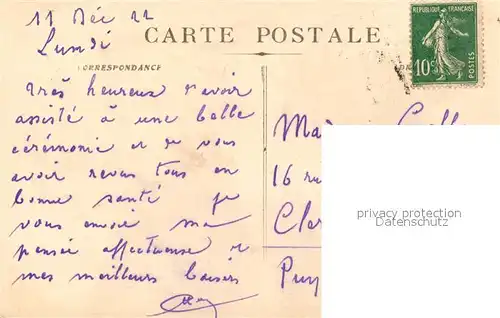 11 Déc 22
Lundi
CARTE POSTALE
REPUBLIQUE FRANÇAISE
10c
POSTES
CORRESPONDANCE
Très heureux d'avoir
assisté à une belle
cérémonie et de vous
avoir revus tous en
bonne santé je
vous envoie ma
pensée affectueuse et
mes meilleurs baisers
16 ru
Cler
Puy
privacy protection
Datenschutz